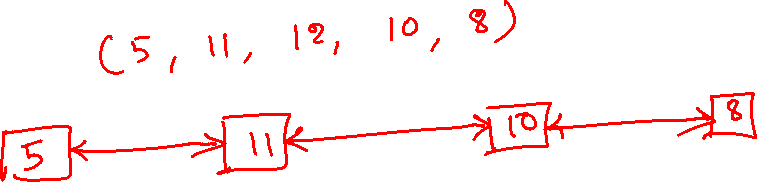 (5, 11, 12, 10, 8)
5 11 10 8